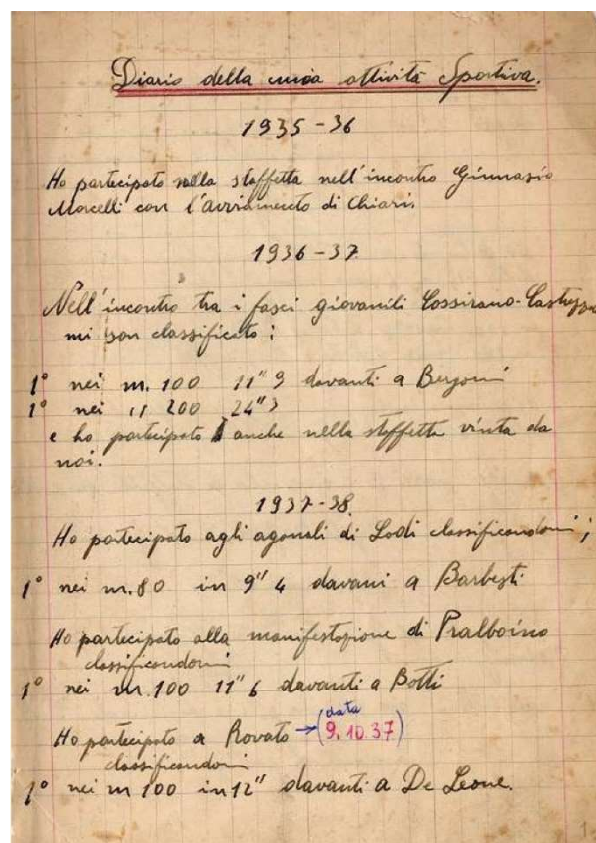 Diario della mia attività Sportiva.
1935-36
Ho partecipato nella staffetta nell'incontro Ginnasio
Morcelli con l'avviamento di Chiari.
1936-37
Nell'incontro tra i fasci giovanili Cossirano-
mi son classificato:
1° nei m. 100 11"9 davanti a Bergomi
1° nei " 200 24"3
e ho partecipato anche nella staffetta vinta da
noi.
1937-38.
Ho partecipato agli agonali di Lodi classificandomi;
1° nei m. 80 in 9" 4 davani a
Ho partecipato alla manifestazione di Pralboino
classificandomi
1° nei m. 100 11" 6 davanti a Botti
(data
Ho partecipato a Rovato → 9.10.37)
classificandomi
1° nei m 100 in 12" davanti a De Leone.
1